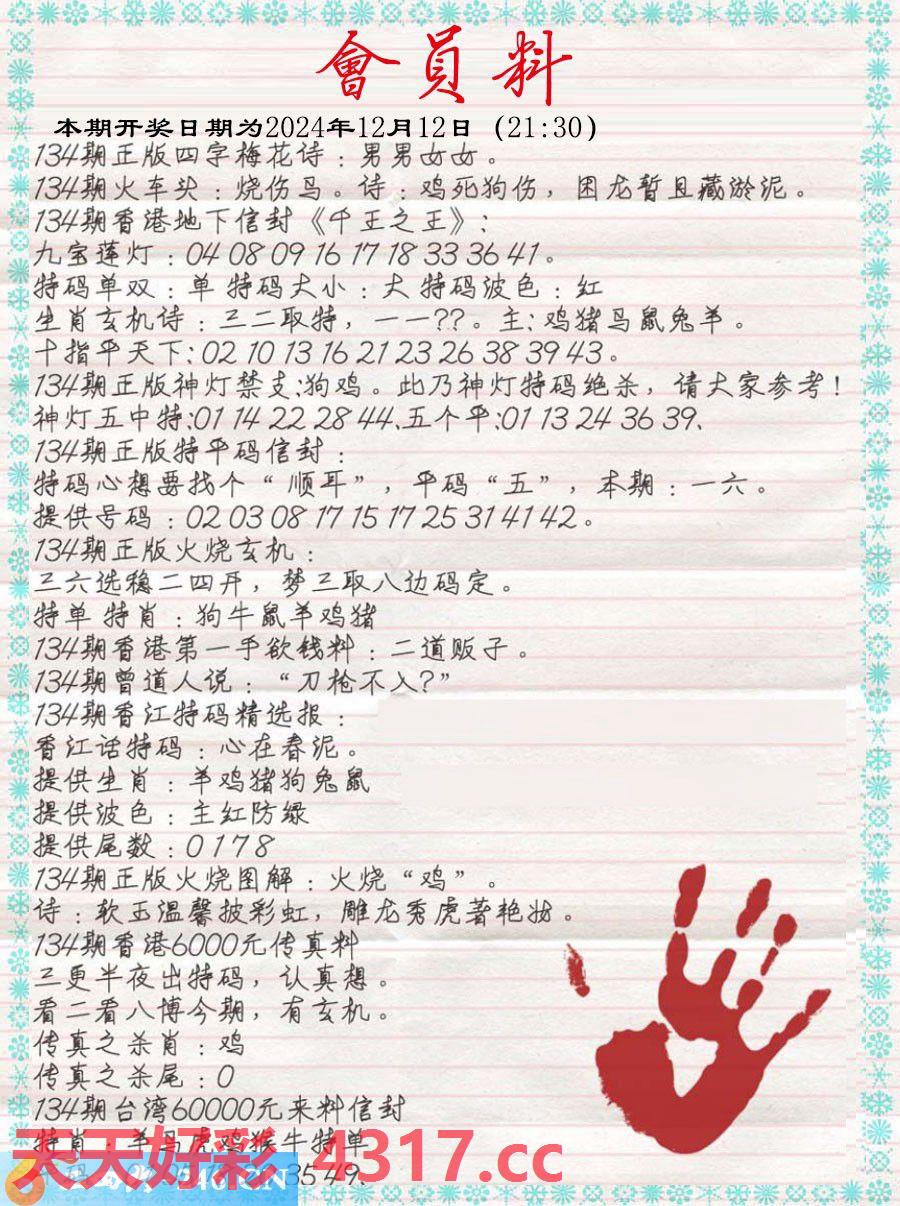 會員料
本期开奖日期为2024年12月12日（21:30）
134期正版四字梅花诗：男男女女。
134期火车头：烧伤鸟。诗：鸡死狗伤，困龙暂且藏淤泥。
134期香港地下信封《千王之王》：
九宝莲灯：04 08 09 16 17 18 33 36 41。
特码单双：单 特码大小：大 特码波色：红
生肖玄机诗：三二取特，一一??。主：鸡猪马鼠兔羊。
十指平天下：02 10 13 16 21 23 26 38 39 43。
134期正版神灯禁支：狗鸡。此乃神灯特码绝杀，请大家参考！
神灯五中特：01 14 22 28 44、五个平：01 13 24 36 39、
134期正版特平码信封：
特码心想要找个“顺耳”，平码“五”，本期：一六。
提供号码：02 03 08 17 15 17 25 31 41 42。
134期正版火烧玄机：
三六选稳二四开，梦三取八边码定。
特单 特肖：狗牛鼠羊鸡猪
134期香港第一手欲钱料：二道贩子。
134期曾道人说：“刀枪不入?”
134期香江特码精选报：
香江话特码：心在春泥。
提供生肖：羊鸡猪狗兔鼠
提供波色：主红防绿
提供尾数：0 1 7 8
134期正版火烧图解：火烧“鸡”。
诗：软玉温馨披彩虹，雕龙秀虎著艳妆。
134期香港6000元传真料
三更半夜出特码，认真想。
看二看八博今期，有玄机。
传真之杀肖：鸡
传真之杀尾：0
134期台湾60000元来料信封
特肖：羊马虎鸡猴牛特单
天天好彩 4317.cc
35 49、